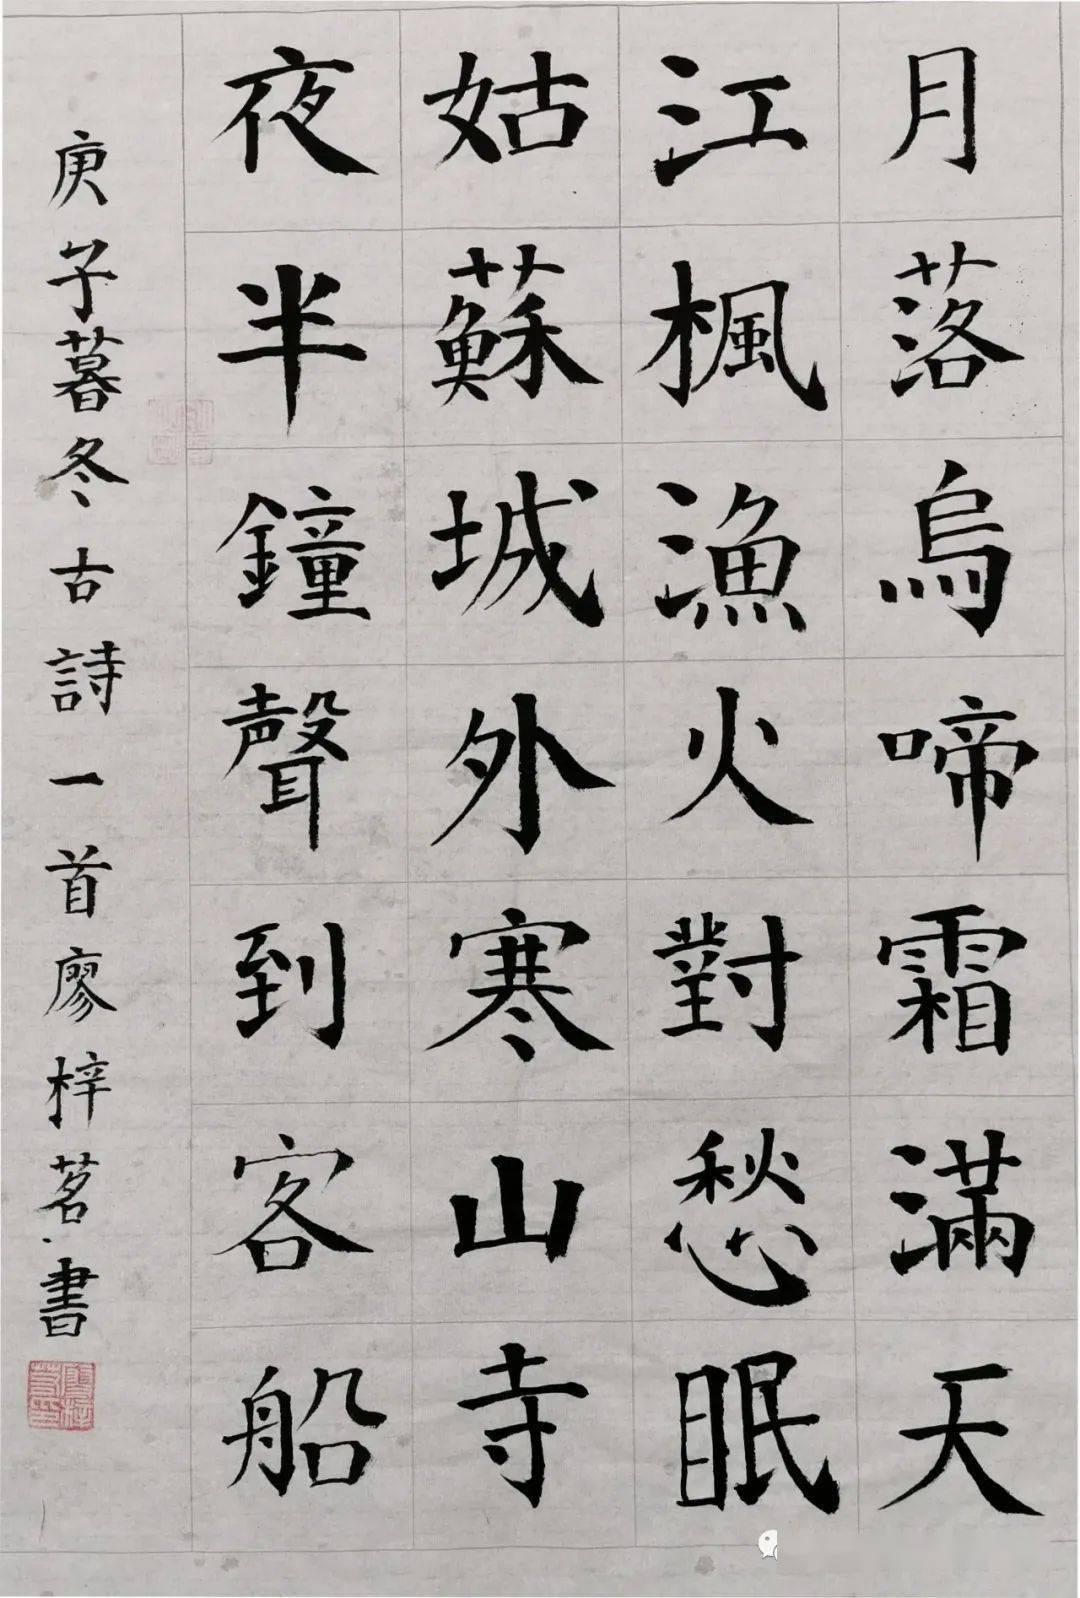 月落烏啼霜滿天
江楓漁火對愁眠
姑蘇城外寒山寺
夜半鐘聲到客船
庚子暮冬古詩一首廖梓茗書